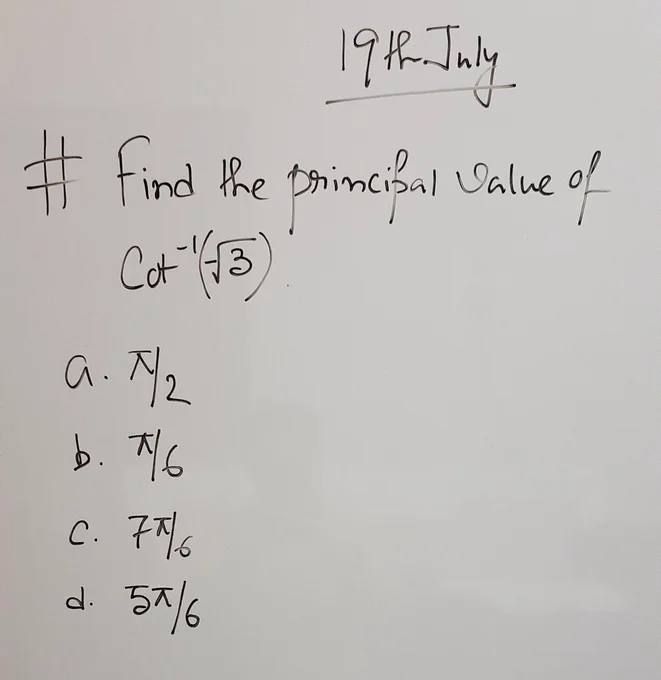 19th July
# Find the principal value of
Cot⁻¹(-√3)
a. π/2
b. π/6
c. 7π/6
d. 5π/6